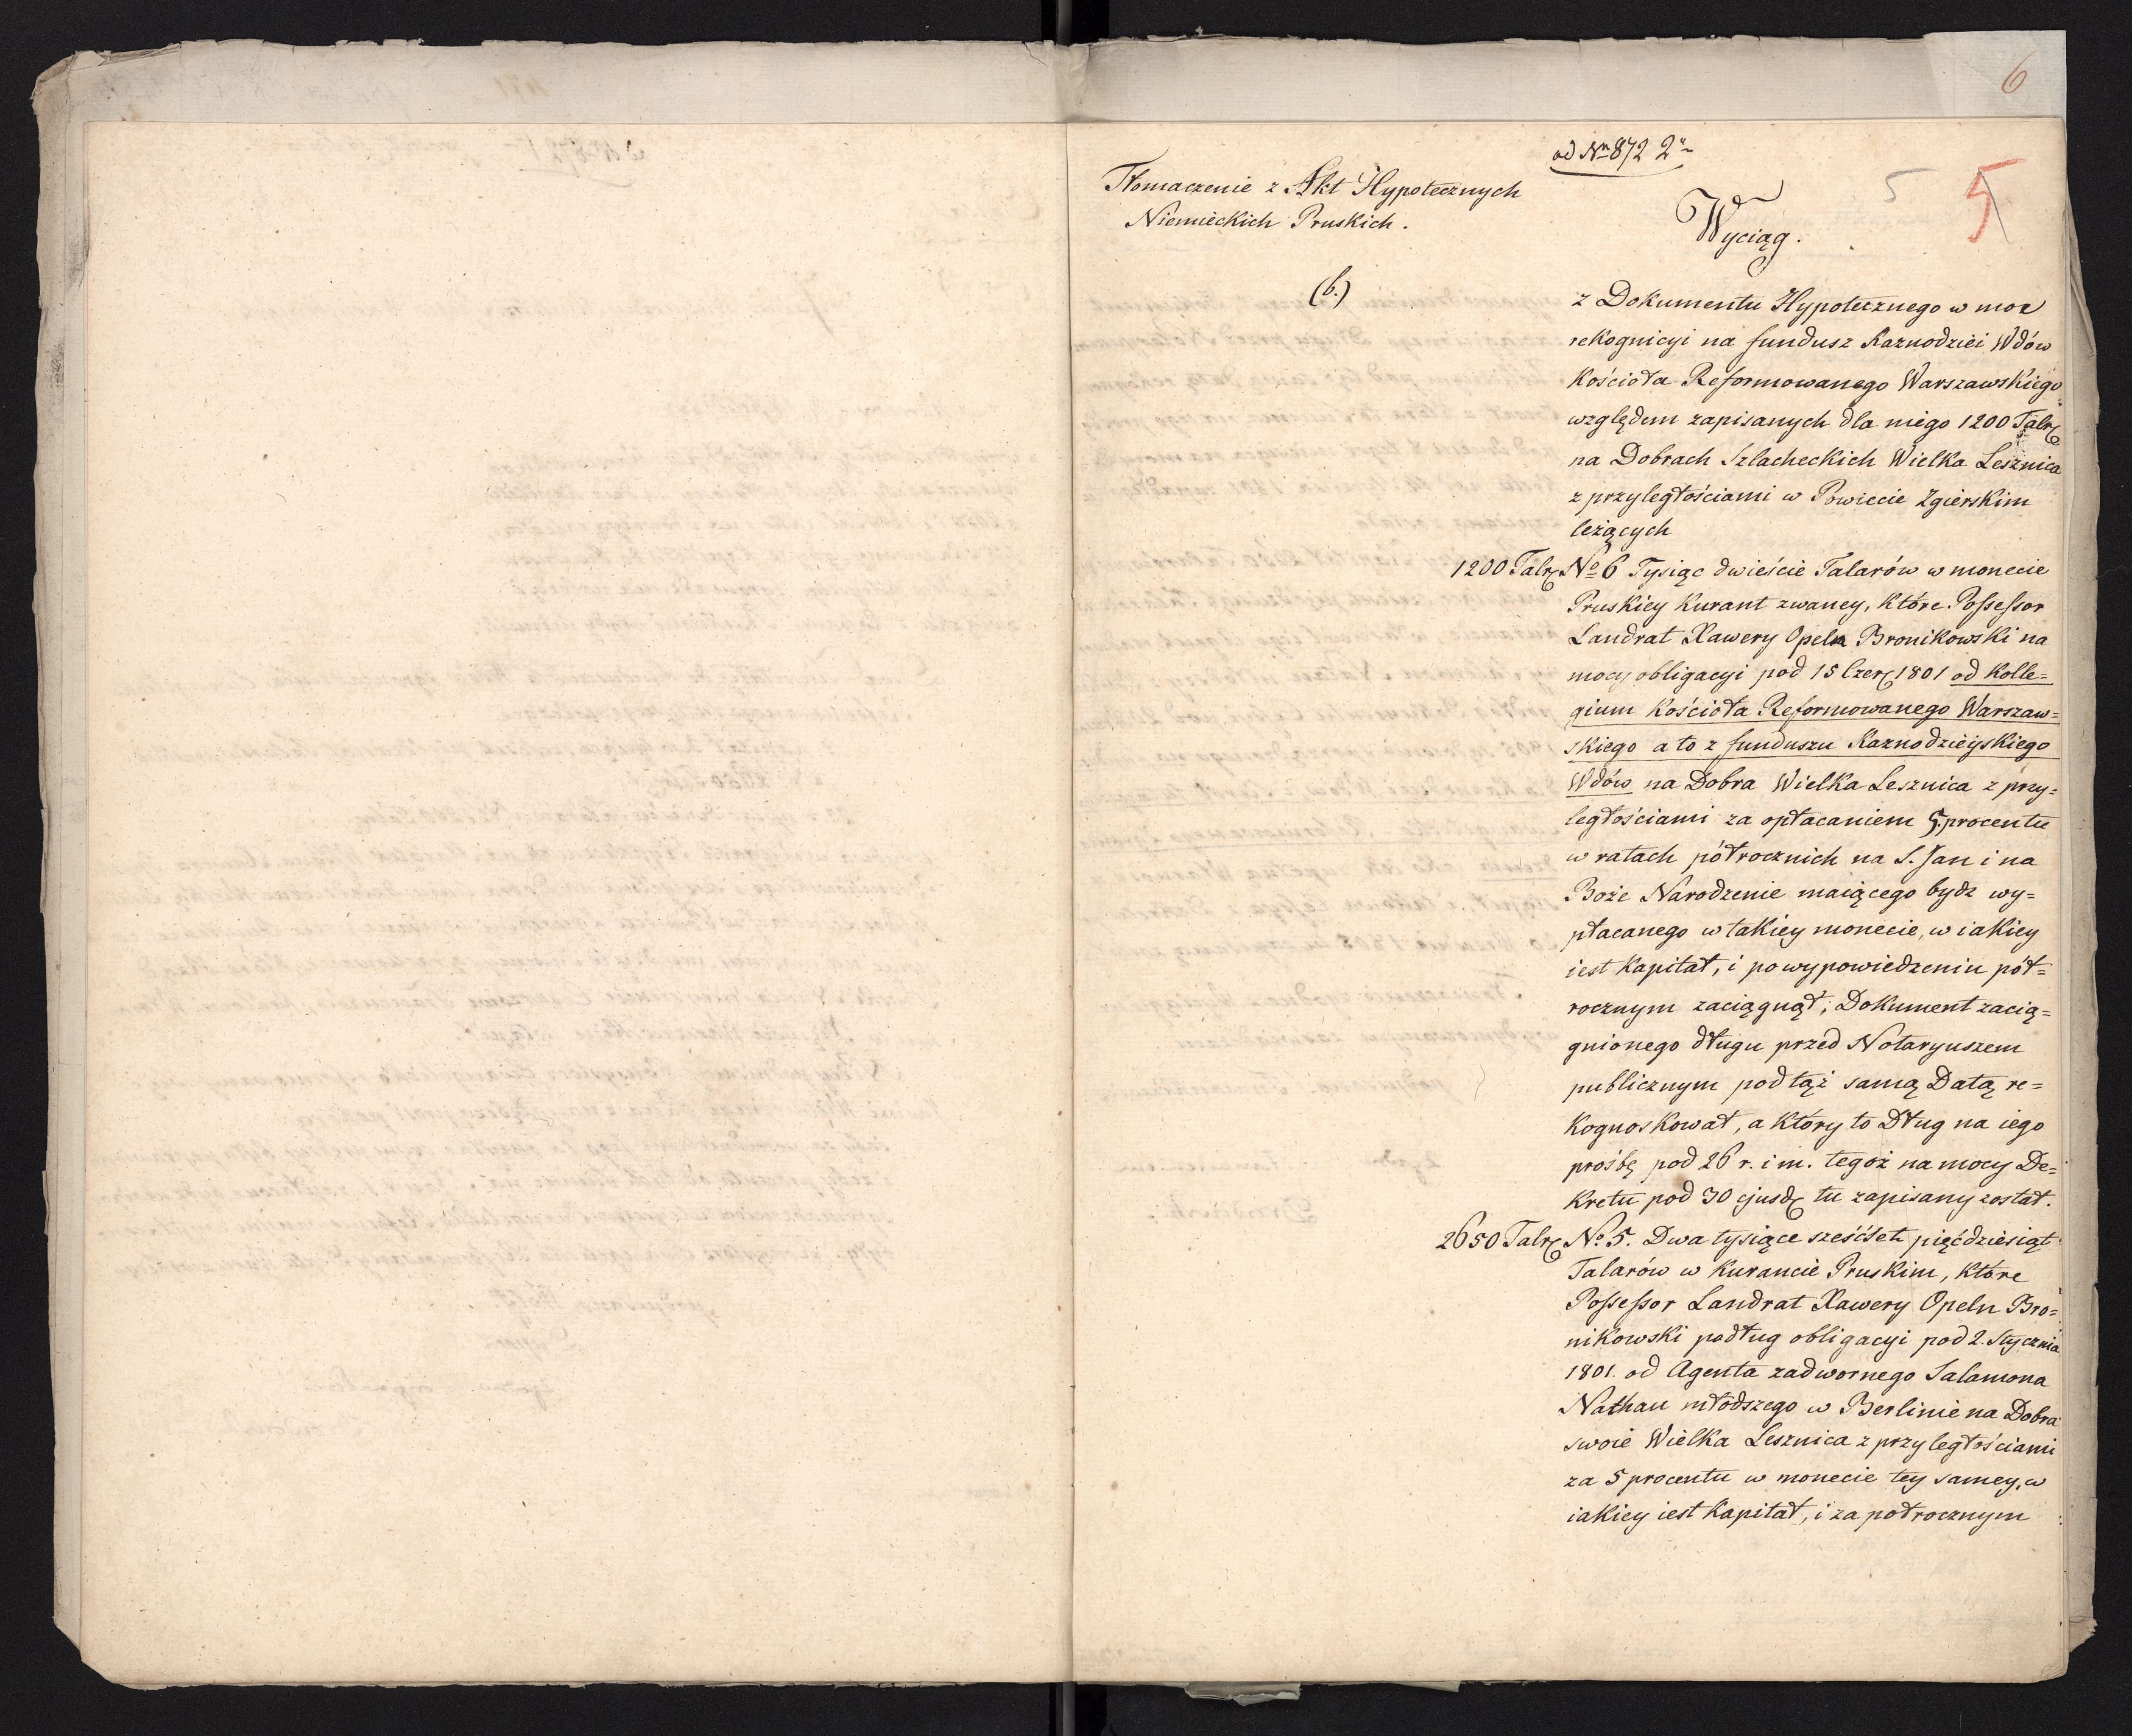 6
od Nro 872 2
5
5
Tłomaczenie z Akt Hypotecznych
Niemieckich Pruskich.
(b.)
Wyciąg.
z Dokumentu Hypotecznego w moc
rekognicyi na fundusz Kaznodziei Wdów
Kościoła Reformowanego Warszawskiego
względem zapisanych dla niego 1200 Talr
na Dobrach Szlacheckich Wielka Lesznica
z przyległościami w Powiecie Zgierskim
leżących
1200 Talr No 6 Tysiąc dwieście Talarów w monecie
Pruskiey Kurant zwaney, które Possessor
Landrat Xawery Opeln Bronikowski na
mocy obligacyi pod 15 Czer 1801 od Kolle=
gium Kościoła Reformowanego Warszaw=
skiego a to z funduszu Kaznodzieyskiego
Wdów na Dobra Wielka Lesznica z przy=
ległościami za opłacaniem 5. procentu
w ratach półrocznich na S. Jan i na
Boże Narodzenie maiącego bydz wy=
płacanego w takiey monecie, w iakiey
iest Kapitał, i po wypowiedzeniu pół=
rocznym zaciągnął, Dokument zacią=
gnionego długu przed Notaryuszem
publicznym pod tąż samą Datą re=
kognoskował, a który to Dług na iego
prośbę pod 26 r. i m. tegoż na mocy De=
kretu pod 30 ejusd tu zapisany został.
2650 Talr No 5. Dwa tysiące sześćset pięćdziesiąt
Talarów w Kurancie Pruskim, które
Possessor Landrat Xawery Opeln Bro=
nikowski podług obligacyi pod 2. Stycznia
1801. od Agenta zadwornego Salamona
Nathan młodszego w Berlinie na Dobra
swoie Wielka Lesznica z przyległościami
za 5 procentu w monecie tey samey, w
iakiey iest Kapitał, i za półrocznym